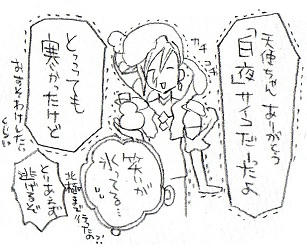 天使ちん ありがとう
「白夜サイコーだったよ
カチ
コチ
とっっても
寒かったけど
おすそわけしたい
くらい
笑いが
氷ってる…
北極まで行ったの?!
とりあえず
逃げるぞ